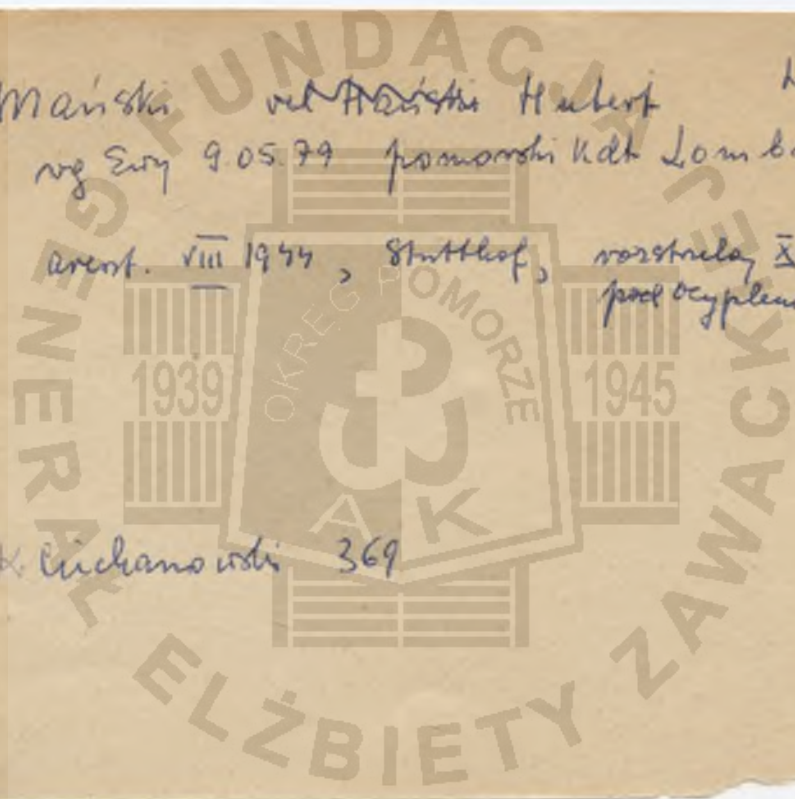 Mański vel Hański Hubert
wg Ewy 9.05.79 pomorski Kdt Lomb
areszt. VIII 1944, Stutthof, rozstrzelany X
pod Ocyplem
K. Ciechanowski 369
FUNDACJA
GENERAŁ ELŻBIETY ZAWACKIEJ
OKRĘG POMORZE
1939 1945
AK